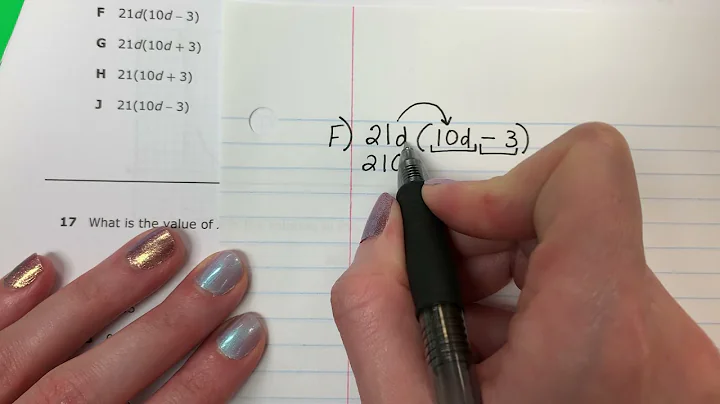 F 21d(10d – 3)
G 21d(10d + 3)
H 21(10d + 3)
J 21(10d – 3)
F) 21d (10d – 3)
210
17 What is the value of